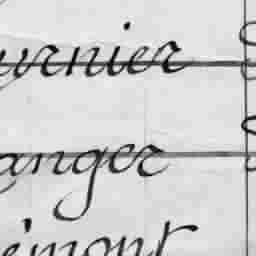 urnier
anger
émont